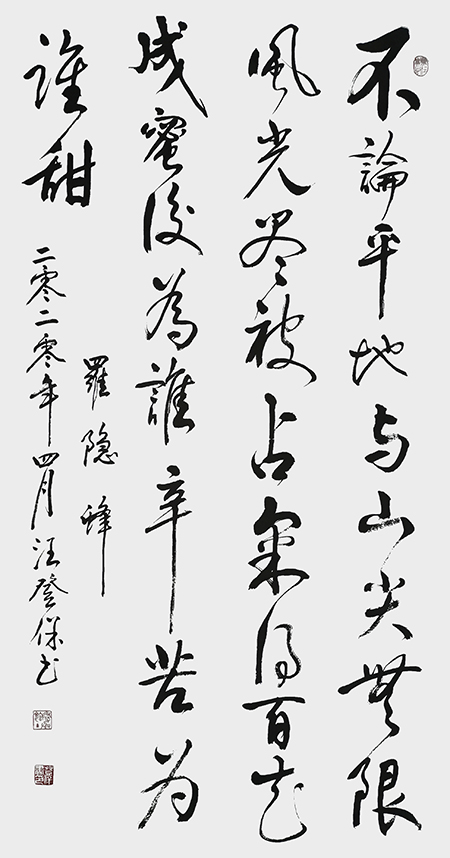 不論平地与山尖無限
風光尽被占采得百花
成蜜後為誰辛苦为
谁甜
羅隐蜂
二零二零年四月汪登保书